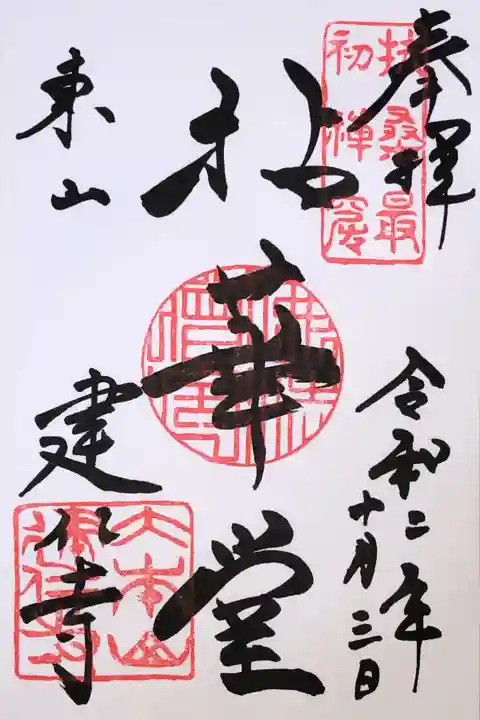 奉拝
扶桑最
初禅窟
拈華堂
令和二年
十月三日
東山
建仁寺
大本山
建仁寺